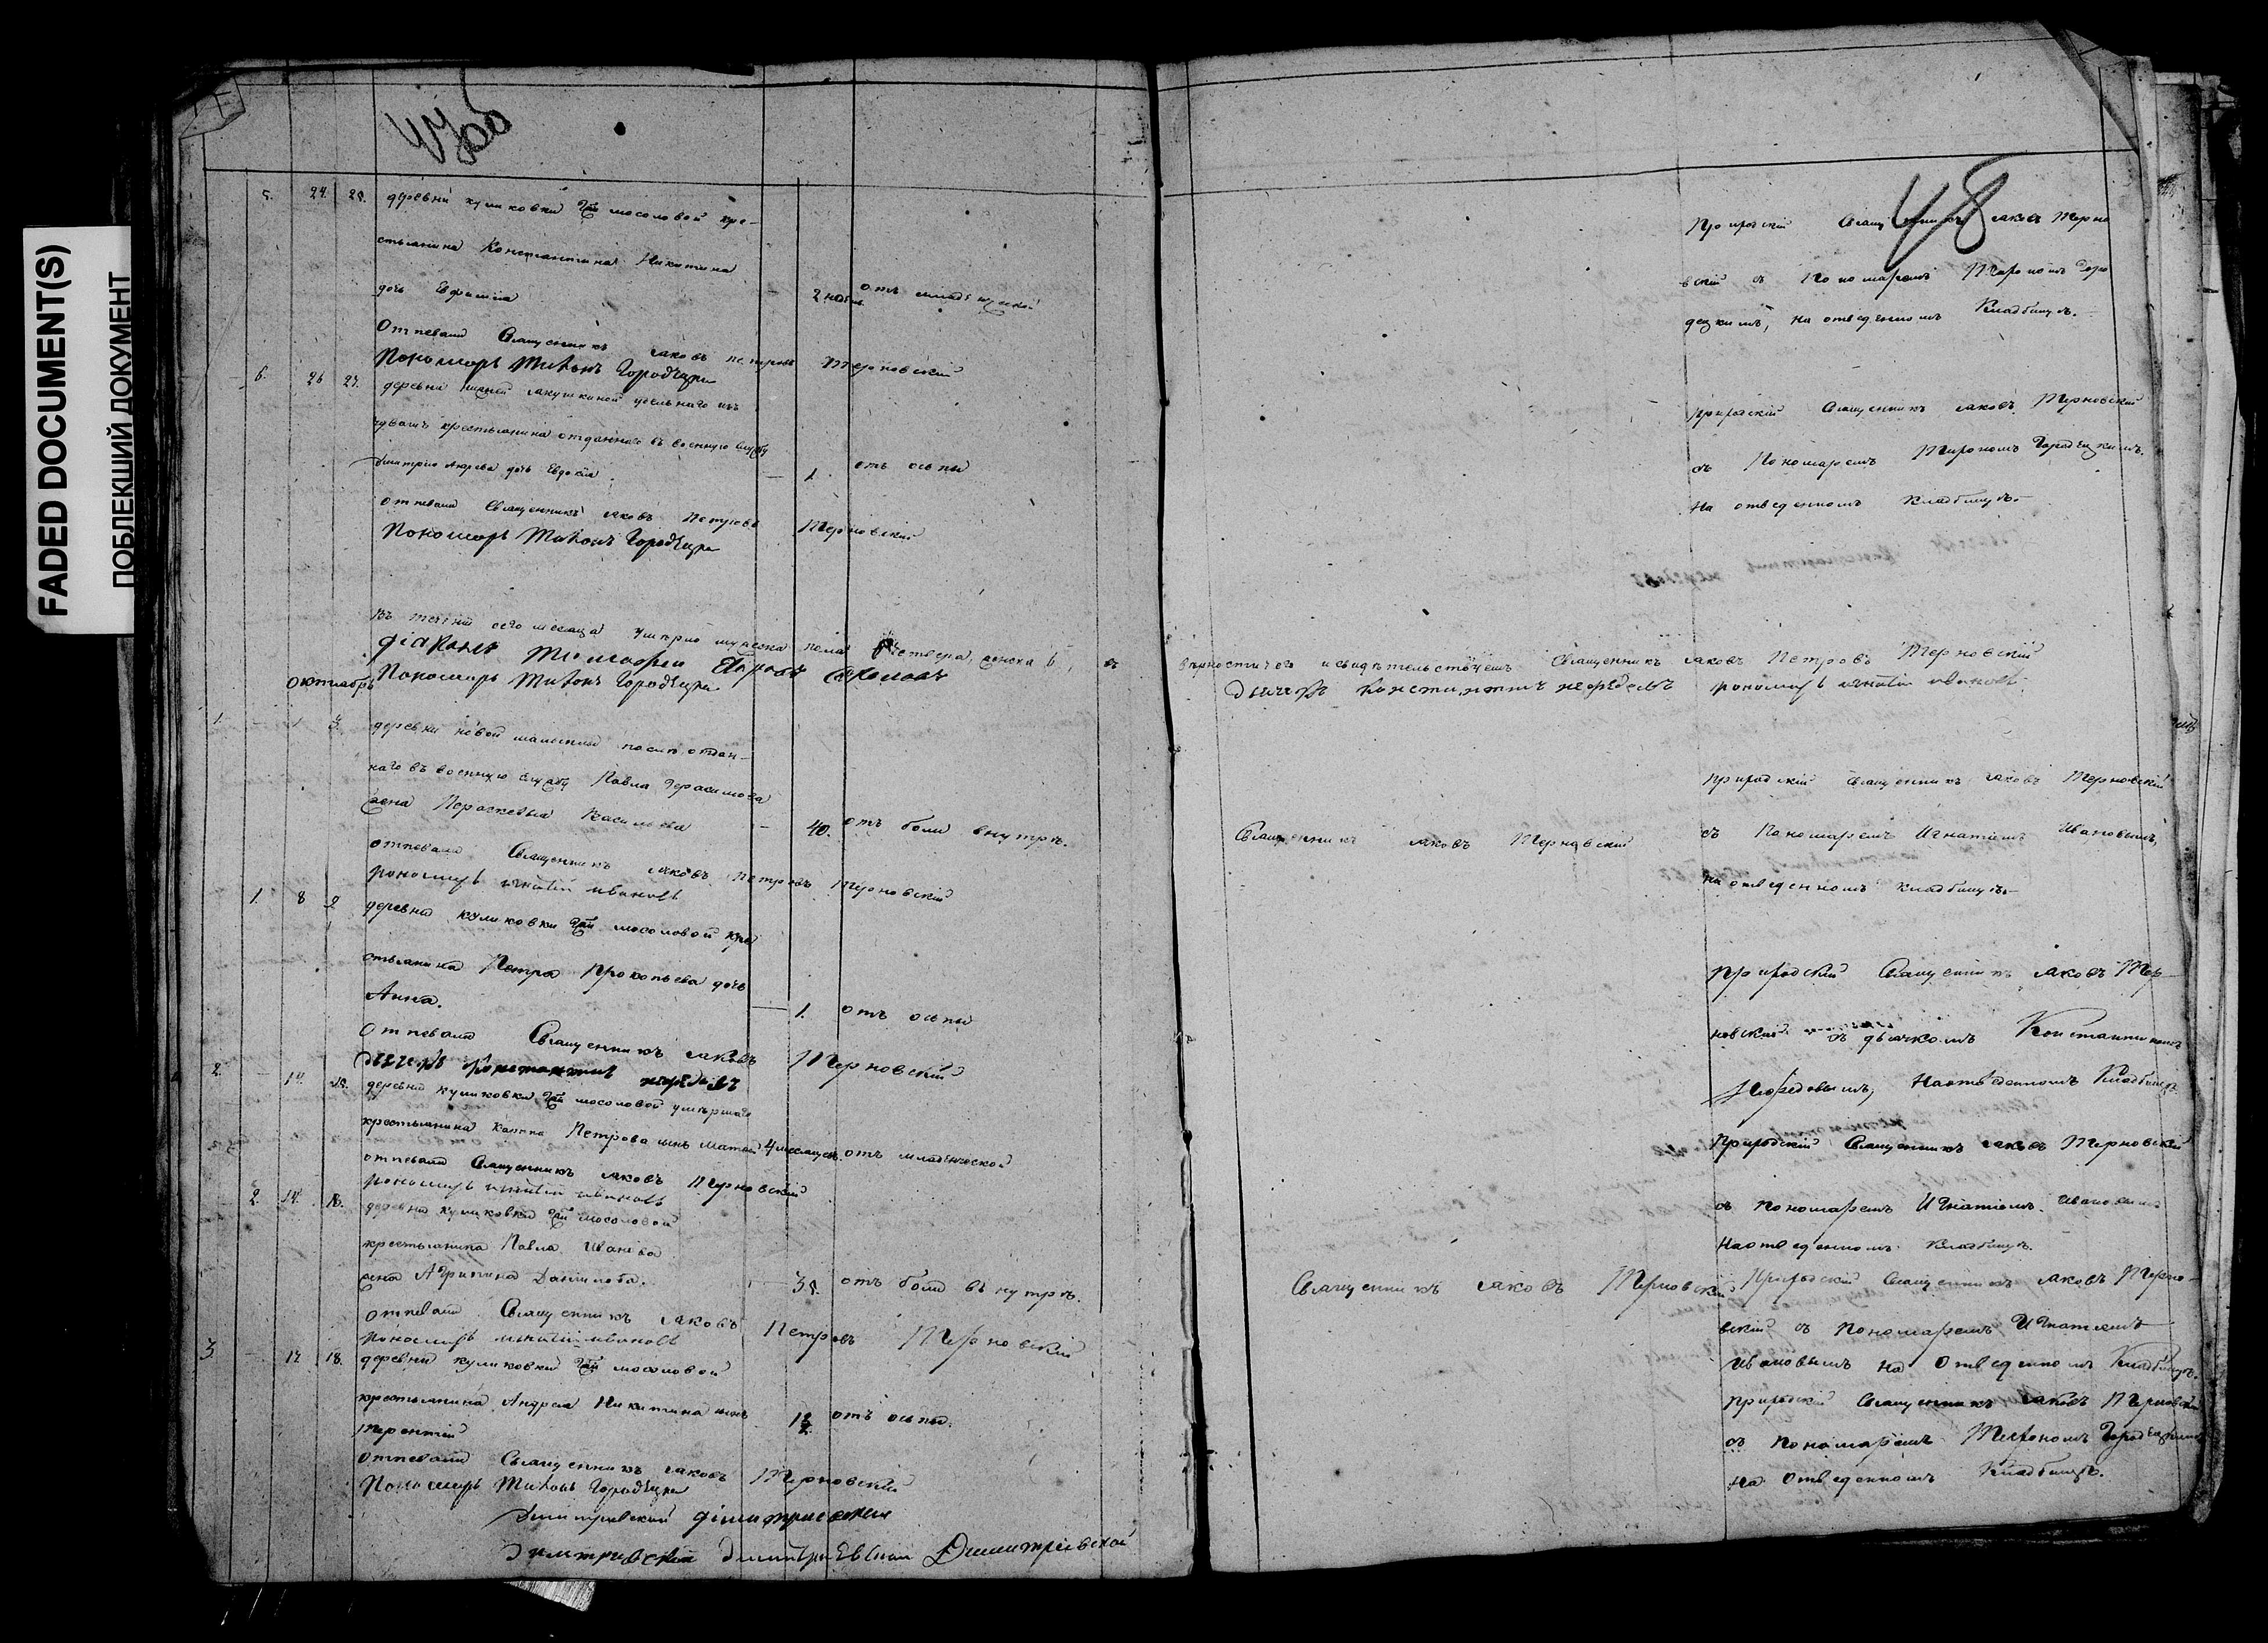 FADED DOCUMENT(S)
ПОБЛЕКШИЙ ДОКУМЕНТ
47об
5. 24 25. деревни куликовки Гжи мосоловой кре-
стьянина Константина Никитина
дочь Евфимiя 2 недел. отъ младенческой
Отпевали Священникъ Iаковъ Петровъ Терновскiй
Пономарь Тихонъ Городецкiй
6. 26 27. деревни нижней удельнаго изъ
чувашъ крестьянина отданнаго въ военную службу
Дмитрiя дочь Евдокiя. 1. отъ оспы
отпевали Священникъ Iаковъ Петровъ Терновскiй
Пономарь Тихонъ Городецкiй
Въ теченiи сего месяца умерло мужеска пола четверо, женска 6, въ
дiаконъ Тимофей
Пономарь Тихонъ Городецкiй
Октябрь
1. – 1 3. деревни новой отдан-
наго въ военную службу Павла Герасимова
жена Параскевья Васильева – 40. отъ боли внутри.
отпевали Священникъ Iаковъ Петровъ Терновскiй
пономарь игнатiй ивановъ
1. 8 9 деревни куликовки Гжи мосоловой кре
стьянина Петра Прокопьева дочь
Анна. 1. отъ оспы
Отпевали Священникъ Iаковъ Терновскiй
дьячекъ Константинъ
2. – 14. деревни куликовки, Гжи мосоловой умершаго
крестьянина Петрова сынъ 4 месяцев. отъ младенческой
отпевали Священникъ Iаковъ Терновскiй
пономарь игнатiй ивановъ
2. 14. 16. деревни куликовки Гжи мосоловой
крестьянина Павла Иванова
жена Агрипина Данилова. 35. отъ боли внутри.
отпевали Священникъ Iаковъ Петровъ Терновскiй
пономарь игнатiй ивановъ
3 – 17 18. деревни куликовки Гжи мосоловой
крестьянина Андрея Никитина сынъ 1½ отъ оспы.
Терентiй
отпевали Священникъ Iаковъ Терновскiй
Пономарь Тихонъ Городецкiй
Димитрiевской
48
Приходскiй Священникъ Iаковъ Терно
вскiй съ Пономаремъ Тихономъ Горо
децкимъ, на отведенномъ Кладбищѣ.
Приходскiй Священникъ Iаковъ Терновскiй
съ Пономаремъ Тихономъ Городецкимъ.
На отведенномъ Кладбищѣ.
верности чего и свидѣтельствуемъ Священникъ Iаковъ Петровъ Терновскiй
дьячекъ константинъ пономарь игнатiй ивановъ
Приходскiй Священникъ Iаковъ Терновскiй
Священникъ Iаковъ Терновскiй съ Пономаремъ Игнатiемъ Ивановымъ,
на отведенномъ кладбищѣ.
Приходскiй Священникъ Iаковъ Тер-
новскiй съ дьячкомъ Константиномъ
На отведенномъ Кладбищѣ
Приходскiй Священникъ Iаковъ Терновскiй
съ Пономаремъ Игнатiемъ Ивановымъ
На отведенномъ Кладбищѣ.
Священникъ Iаковъ Терновскiй Приходскiй Священникъ Iаковъ Терно-
вскiй съ Пономаремъ Игнатiемъ
Ивановымъ на отведенномъ Кладбищѣ.
Приходскiй Священникъ Iаковъ Терновскiй
съ Пономаремъ Тихономъ Городецкимъ
На отведенномъ Кладбищѣ.